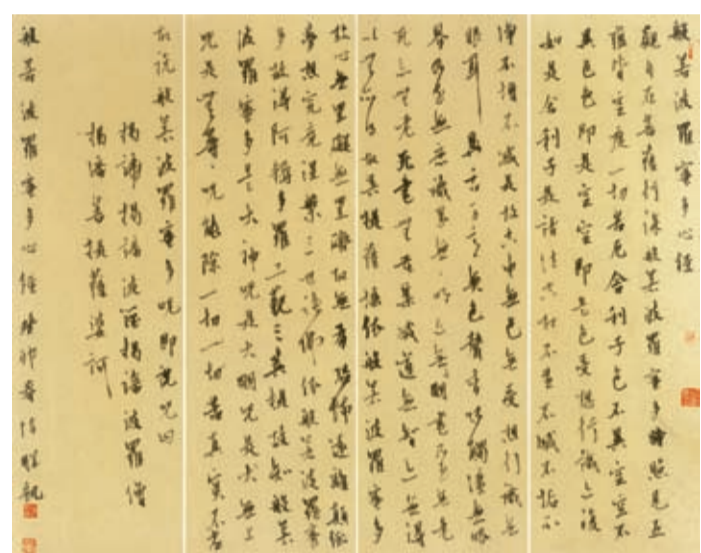 般若波羅蜜多心經
觀自在菩薩行深般若波羅蜜多時照見五
蘊皆空度一切苦厄舍利子色不異空空不
異色色即是空空即是色受想行識亦復
如是舍利子是諸法空相不生不滅不垢不
淨不增不減是故空中無色無受想行識無
眼耳鼻舌身意無色聲香味觸法無眼
界乃至無意識界無無明亦無無明盡乃至無老
死亦無老死盡無苦集滅道無智亦無得
以無所得故菩提薩埵依般若波羅蜜多
故心無罣礙無罣礙故無有恐怖遠離顛倒
夢想究竟涅槃三世諸佛依般若波羅蜜
多故得阿耨多羅三藐三菩提故知般若
波羅蜜多是大神咒是大明咒是大無上
咒是無等咒能除一切苦真實不虛
故說般若波羅蜜多咒即說咒曰
揭諦揭諦波羅揭諦波羅僧
揭諦菩提薩婆訶
般若波羅蜜多心經